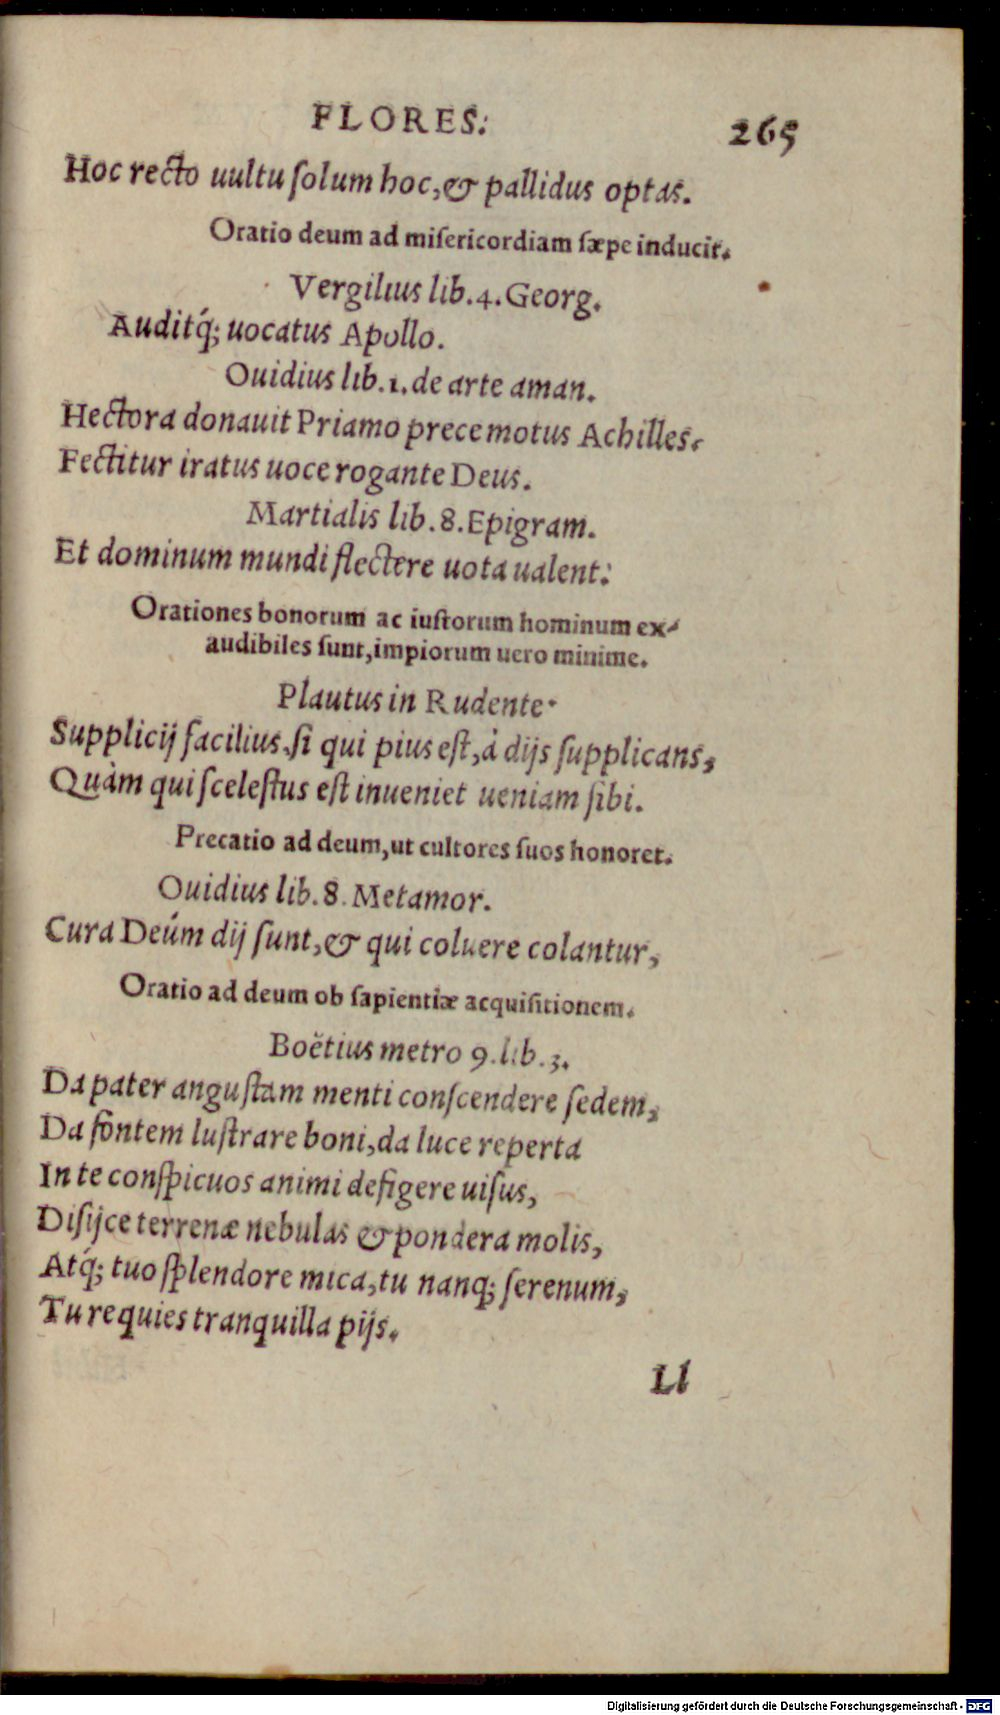 FLORES. 265
Hoc recto uultu ſolum hoc,& pallidus optas.
Oratio deum ad miſericordiam ſæpe inducit.
Vergilius lib.4.Georg.
Auditq́; uocatus Apollo.
Ouidius lib.1.de arte aman.
Hectora donauit Priamo prece motus Achilles.
Fectitur iratus uoce rogante Deus.
Martialis lib.8.Epigram.
Et dominum mundi flectere uota ualent.
Orationes bonorum ac iuſtorum hominum ex-
audibiles ſunt,impiorum uero minime.
Plautus in Rudente.
Supplicij facilius,ſi qui pius eſt,à dijs ſupplicans,
Quàm qui ſceleſtus eſt inueniet ueniam ſibi.
Precatio ad deum,ut cultores ſuos honoret.
Ouidius lib.8.Metamor.
Cura Deúm dij ſunt,& qui coluere colantur,
Oratio ad deum ob ſapientiæ acquiſitionem.
Boëtius metro 9.lib.3.
Da pater anguſtam menti conſcendere ſedem,
Da fontem luſtrare boni,da luce reperta
In te conſpicuos animi defigere uiſus,
Diſijce terrenæ nebulas & pondera molis,
Atq́; tuo ſplendore mica,tu nanq; ſerenum,
Tu requies tranquilla pijs.
Ll
Digitalisierung gefördert durch die Deutsche Forschungsgemeinschaft - DFG